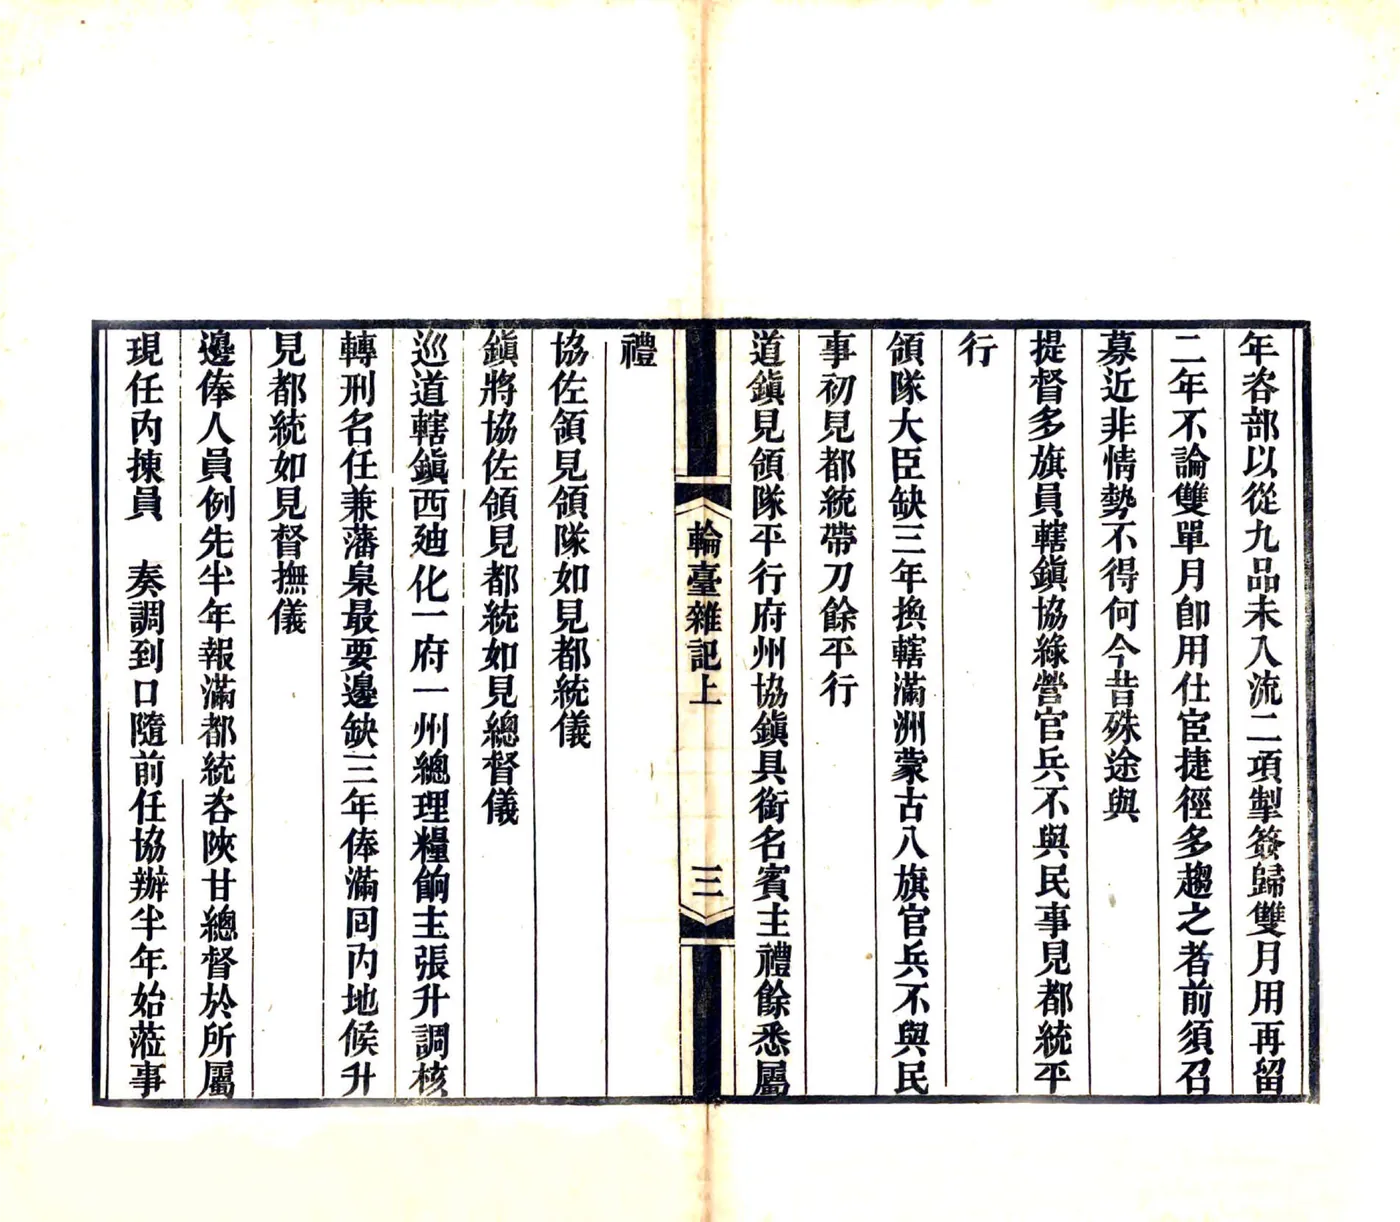 年咨部以從九品未入流二項掣簽歸雙月用再留
二年不論雙單月卽用仕宦捷徑多趨之者前須召
募近非情勢不得何今昔殊途與
提督多旗員轄鎭協綠營官兵不與民事見都統平
行
領隊大臣缺三年換轄滿洲蒙古八旗官兵不與民
事初見都統帶刀餘平行
道鎭見領隊平行府州協鎭具銜名賓主禮餘悉屬
輪臺雜記上
三
禮
協佐領見領隊如見都統儀
鎭將協佐領見都統如見總督儀
巡道轄鎭西廸化一府一州總理糧餉主張升調核
轉刑名任兼藩臬最要邊缺三年俸滿同內地候升
見都統如見督撫儀
邊俸人員例先半年報滿都統咨陝甘總督於所屬
現任內揀員　奏調到口隨前任協辦半年始蒞事